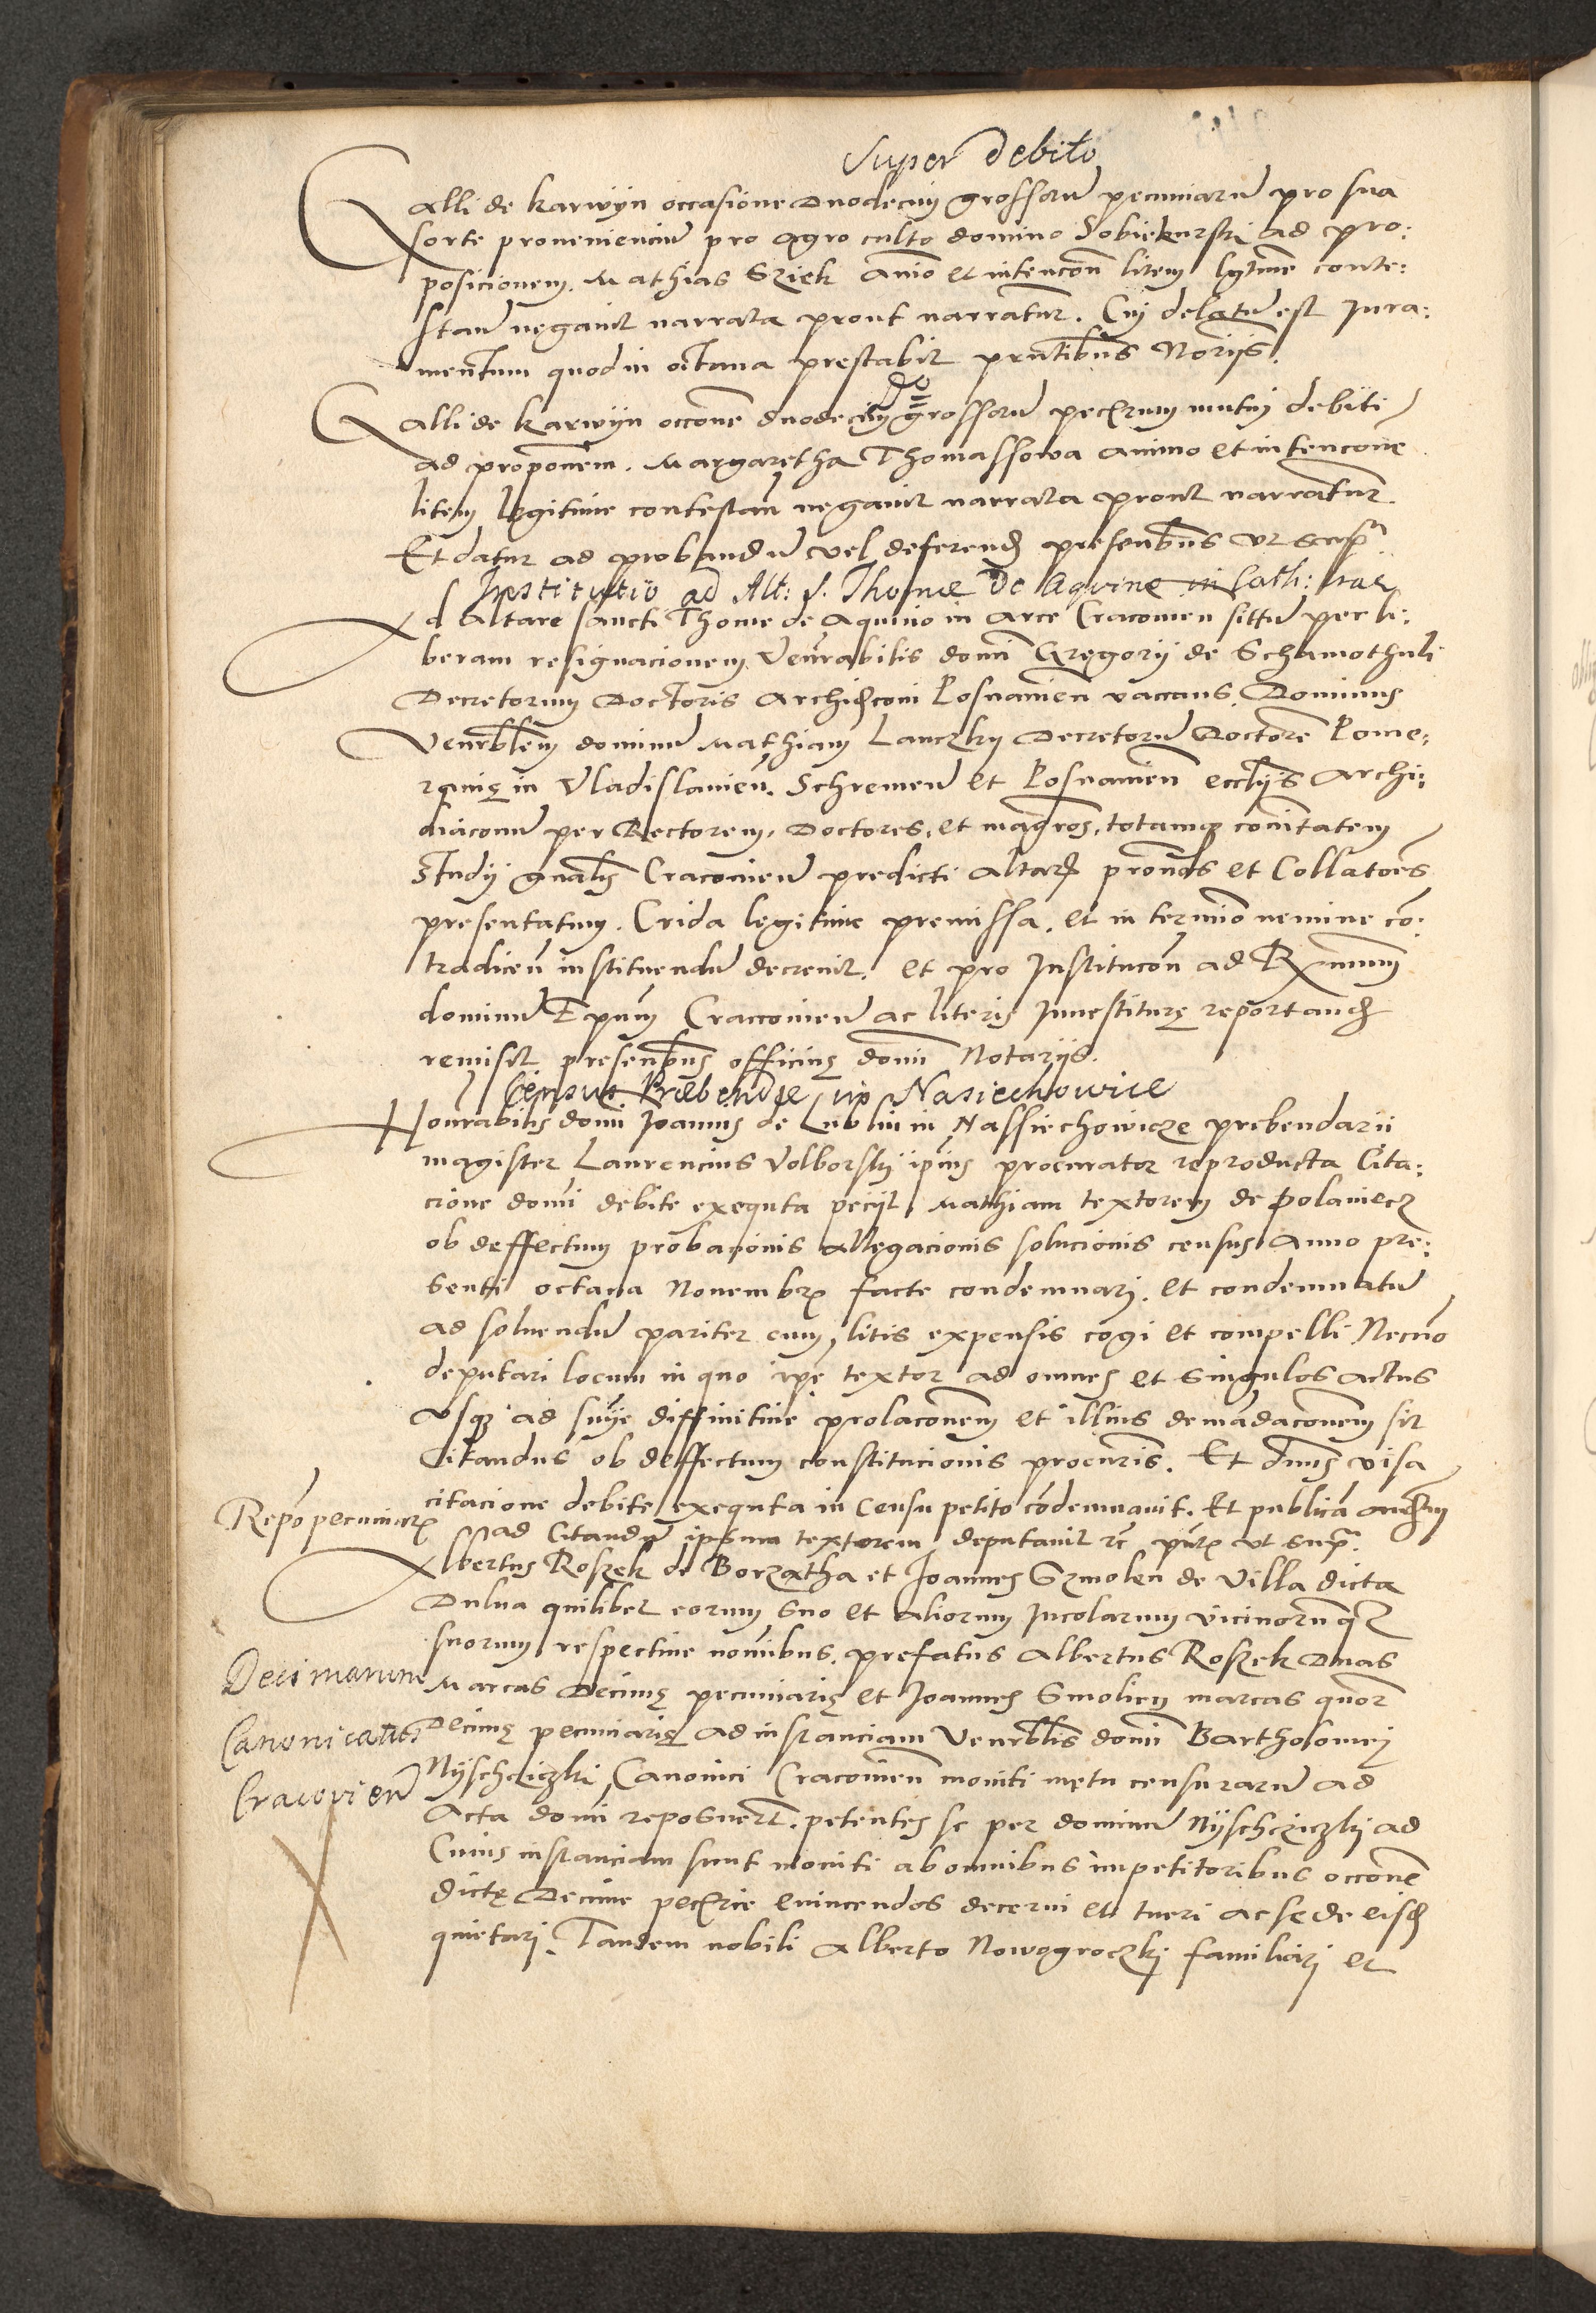 Super debito
Galli de Karwijn occasione duodecim grossorũ pecuniarũ pro sua
sorte proveniencium pro agro culto domino Sobiekurski ad pro:
posicionem. Mathias Sziek animo et intencoñ litem lgtime conte:
stañ negavit narrata prout narrantur. Cuj delatũ est jura:
mentum quod in octava prestabit pntibus Norijs.
Do
Galli de Karwijn occone duodecim grossorũ peccrum mutuj debiti
ad proponem. Margaretha Thomassowa animo et intencone
litem legitime contestañ negavit narrata prout narrantur.
Et datur ad probandũ vel deferend presentibus ut supra.
Institutio ad Alt: S. Thomæ De Aquine in Cath: Crac
Ad altare sancti Thome de Aquino in arce Cracovien sittũ per li:
beram resignacionem Venerabilis domi Gregorij de Schamothuli
Decretorum Doctoris Archidiconi Posnanien vaccans. Dominus
Venerablem dominũ Mathiam Lanczky Decretorũ Doctorẽ Pome:
ranię in Vladislavien. Schremeñ et Posnanien ecclijs Archi:
diaconũ per Rectorem, Doctores, et magros, totamq comitatem
Studij gnalis Cracovieñ predicti altaris pronos et Collatores
presentatum. Crida legitime premissa. et in termio nemine cõ:
tradiceñ instituendũ decrevit. et pro Institucoñ ad Rmum
dominũ Epum Craccovieñ ac literis Investiturę reportand
remisit presentibus officiuę domi Notarijs.
Census Præbendæ in Nasiechowice
Honrabilis domi Joannis de Lublin in Nassiechowicze prebendarii
magister Laurencius Volborski ipius procurator reproducta Cita:
cione domi debite exequta pecijt Mathiam textorem de Polaniecz
ob deffectum probacionis allegacionis solucionis census Anno pre:
senti octava Novembr facte condemnari. et condemnatũ
ad solvendũ pariter cum litis expensis cogi et compelli Necnõ
deputari locum in quo ipe textor ad omnes et singulos actus
usq ad snije diffinitive prolaconem et illius demãdaconem sit
Citandus ob deffectum constitucionis procuris. Et dnus visa
citacione debite exequta in Censu petito cõdemnavit. Et publicã audciam
ad Citandũ ipsum textorem deputavit rc pntr ut supra.
Repo pecuniar
Decimarum
Canonicatus
Cracovieñ
Albertus Roszek de Borzatha et Joannes Szmolen de Villa dicta
Dulva quilibet eorum suo et aliorum Incolarum vicinorũq
suorum respective nomibus. prefatus Albertus Roszek Duas
Marcas Decimę pecuniarię et Joannes Smolien marcas quor
Decimę pecuniarię ad instanciam Venerblis domi Bartholomej
Nijschcziczki Canonici Cracovien moniti metu censurarũ ad
Acta domi reposuert. petentes se per dominũ Nijschcziczki ad
Cuius instanciam sunt moniti ab omnibus impetitoribus occone
dictę Decime peccrie evincendos decerni et tueri ac se de eisd
quietari. Tandem nobili Alberto Nowogroczki familiari et